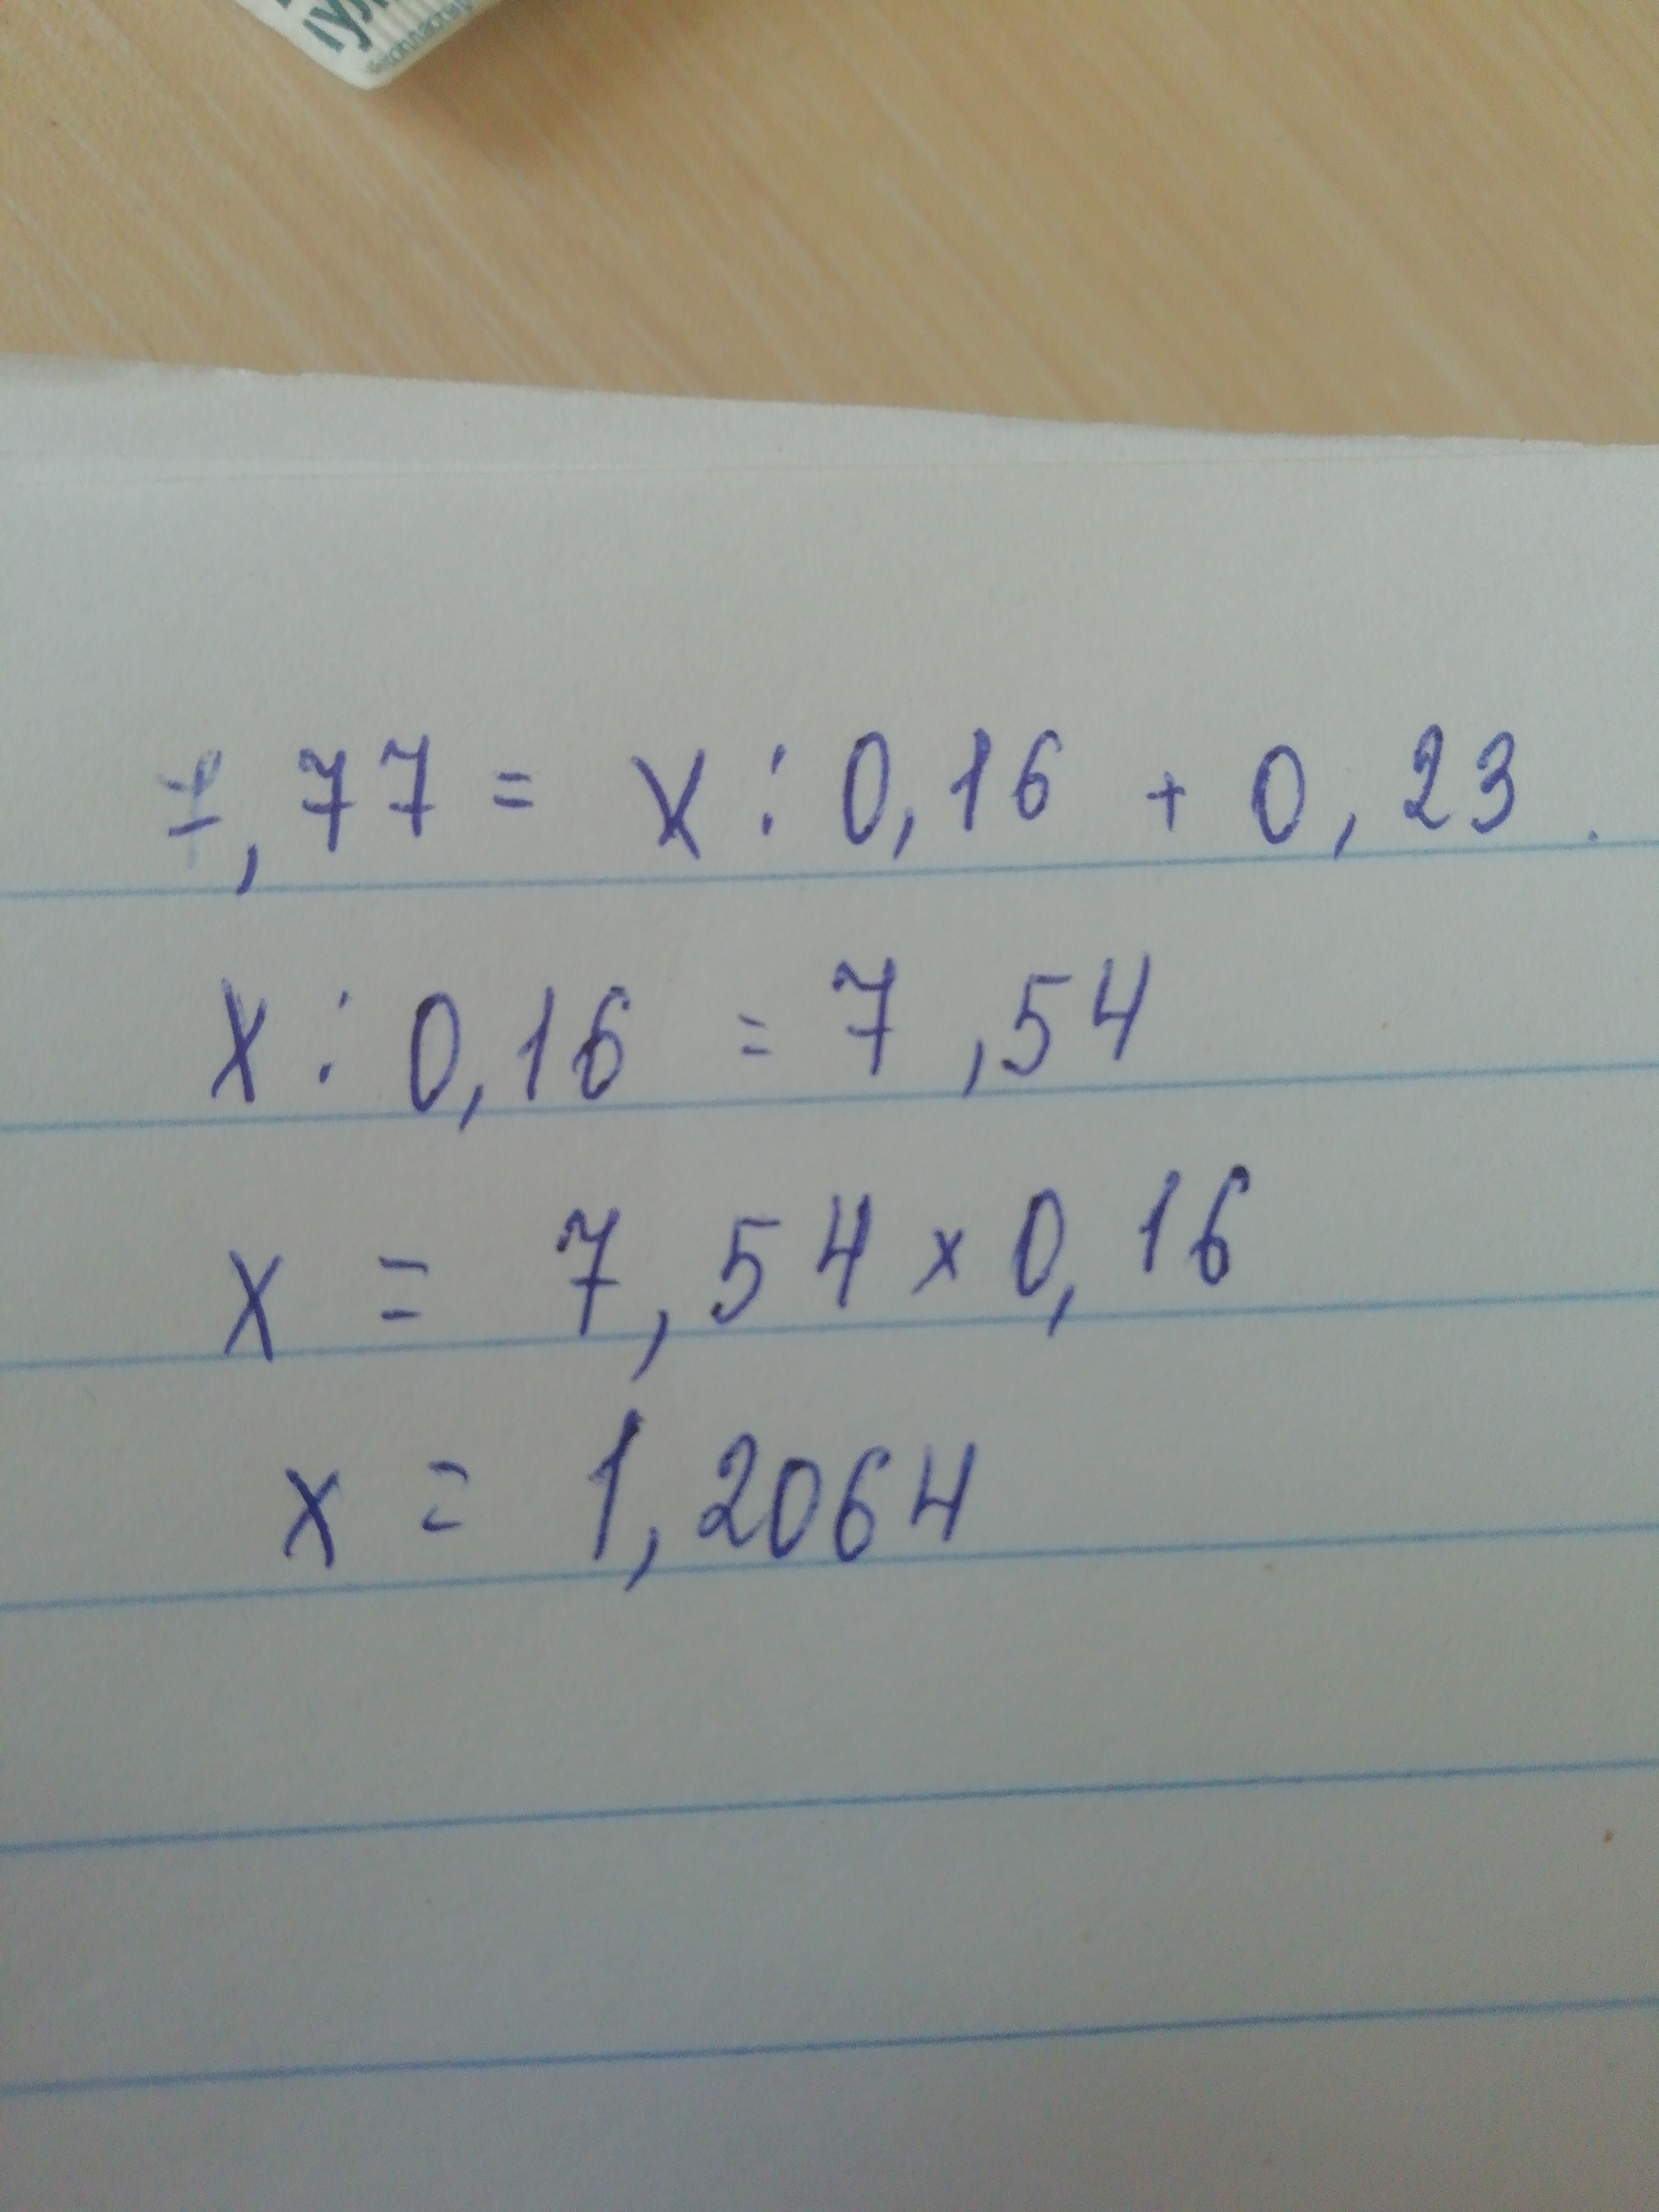 7,77 = x : 0,16 + 0,23.
x : 0,16 = 7,54
x = 7,54 x 0,16
x = 1,2064